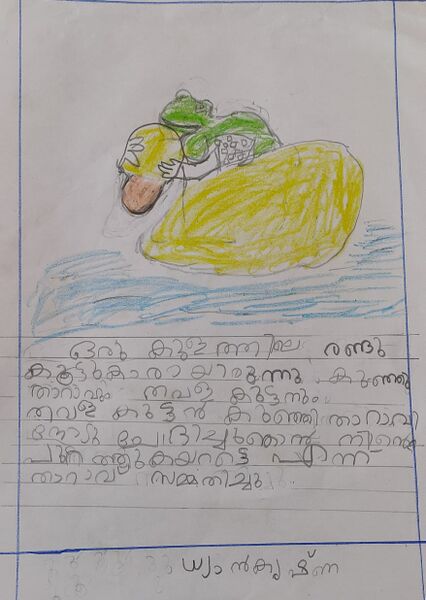 ഒരു കുളത്തിലെ രണ്ടു
കൂട്ടുകാരായിരുന്നു കുഞ്ഞു
താറാവും തവള കുട്ടനും.
തവള കുട്ടൻ കുഞ്ഞി താറാവി
നോടു ചോദിച്ചു ഞാൻ നിന്റെ
പുറത്തുകയറട്ടെ എന്ന്
താറാവ് സമ്മതിച്ചു
ധ്യാൻകൃഷ്ണ